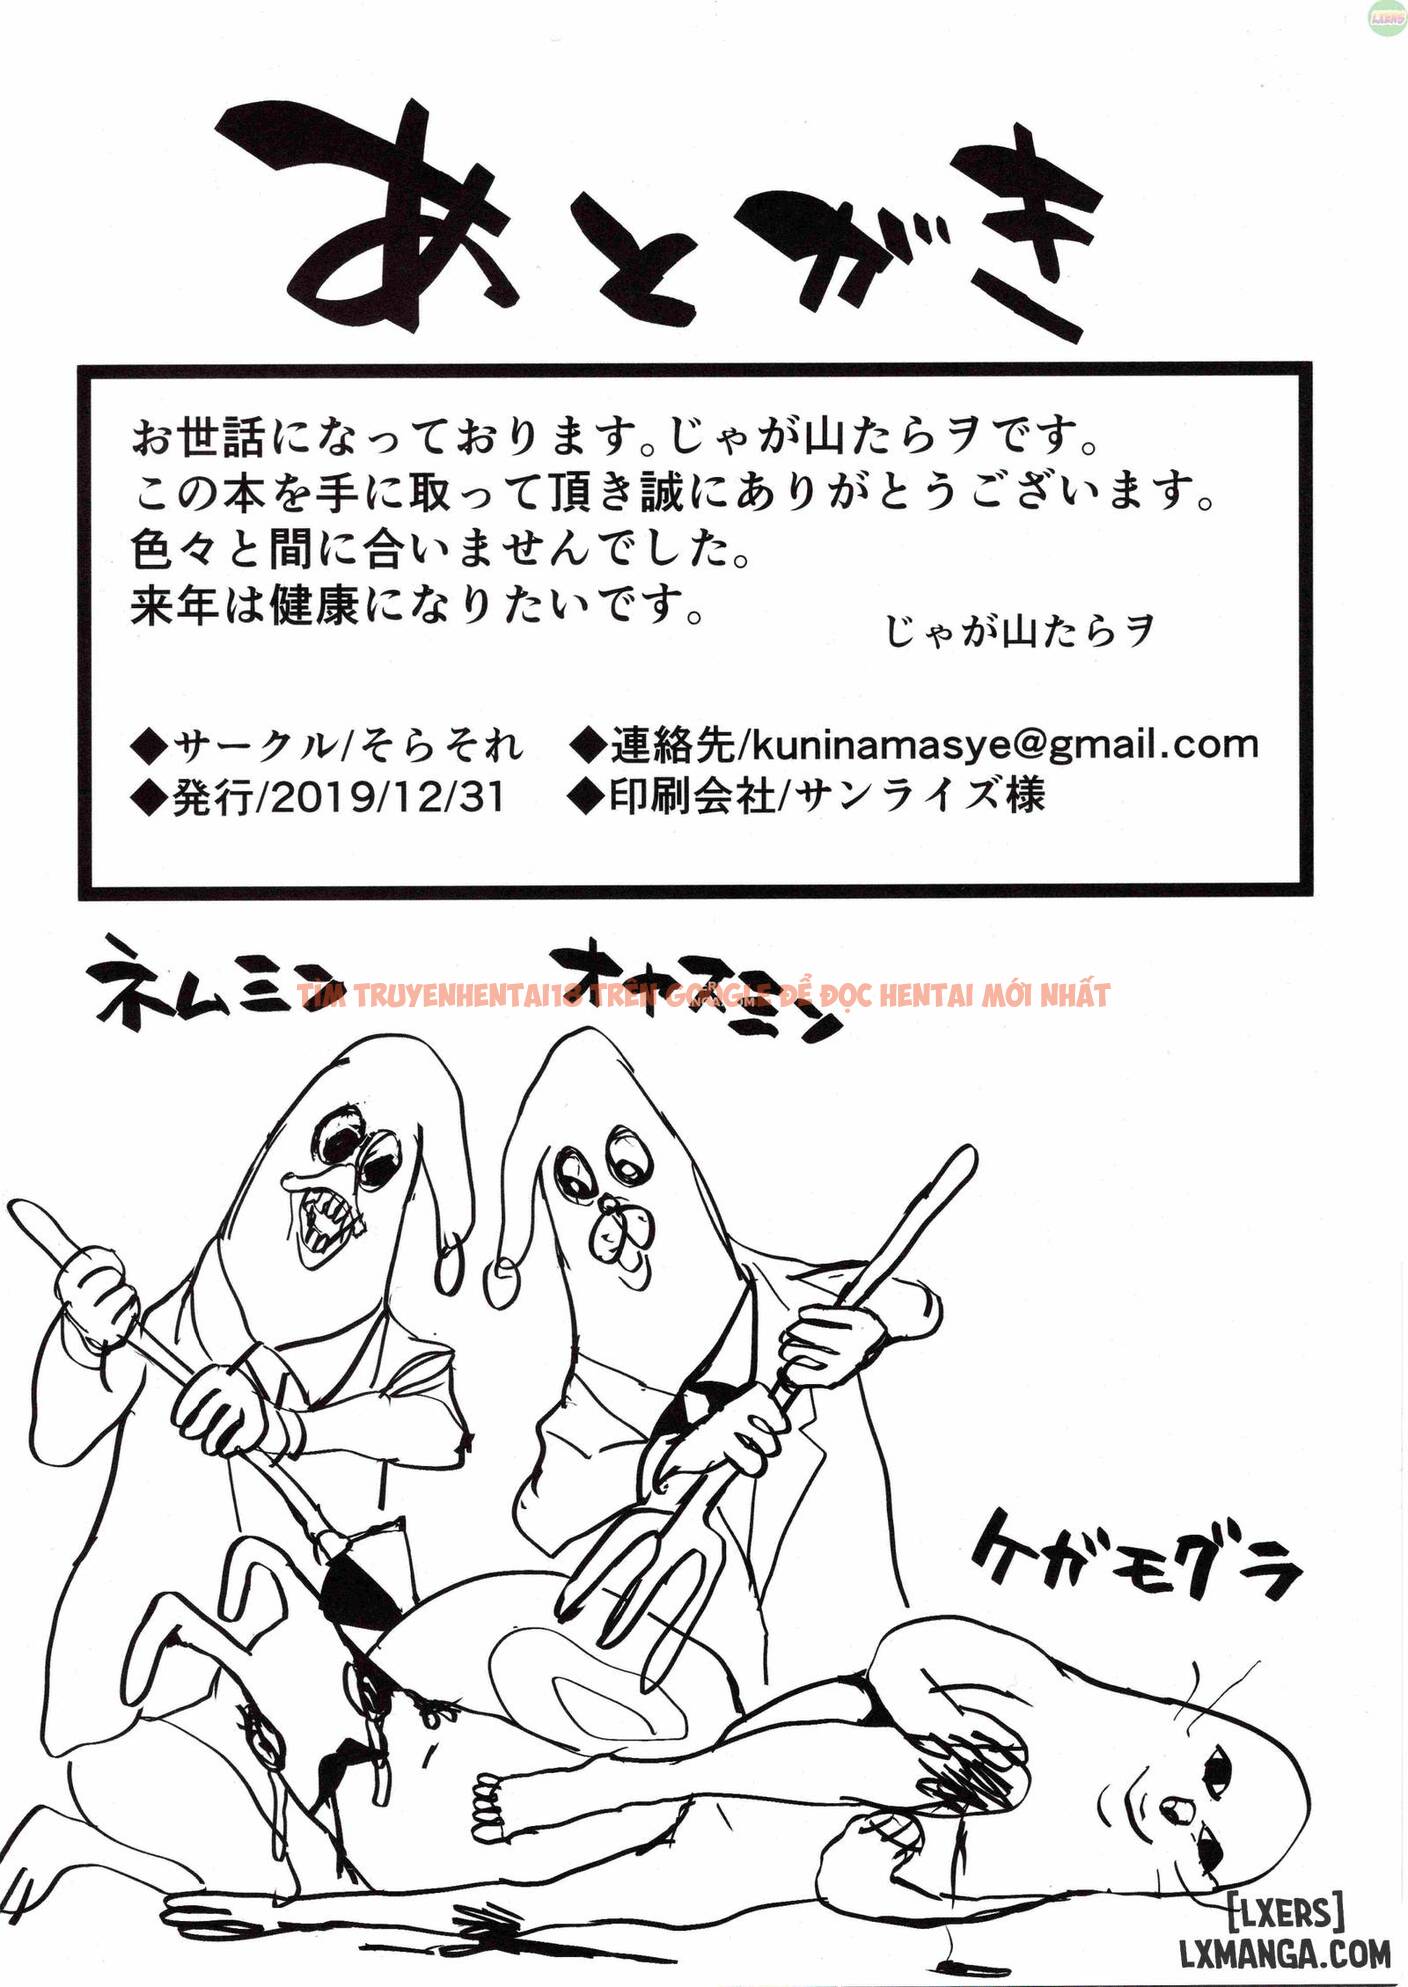 LXERS
あとがき
お世話になっております。じゃが山たらヲです。
この本を手に取って頂き誠にありがとうございます。
色々と間に合いませんでした。
来年は健康になりたいです。
じゃが山たらヲ
◆サークル/そらそれ ◆連絡先/kuninamasye@gmail.com
◆発行/2019/12/31 ◆印刷会社/サンライズ様
ネムミン オヤスミン
TÌM TRUYENHENTAI18 TRÊN GOOGLE ĐỂ ĐỌC HENTAI MỚI NHẤT
ケガモグラ
[LXERS]
LXMANGA.COM